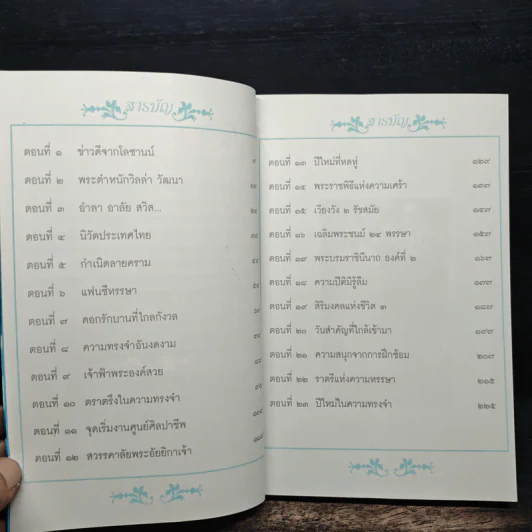 สารบัญ
ตอนที่ ๑ ข่าวดีจากโลซานน์ ๙
ตอนที่ ๒ พระตำหนักวิลล่า วัฒนา
ตอนที่ ๓ อำลา อาลัย สวิส...
ตอนที่ ๔ นิวัตประเทศไทย
ตอนที่ ๕ กำเนิดลายคราม
ตอนที่ ๖ แฟนซีหรรษา
ตอนที่ ๗ ดอกรักบานที่ไกลกังวล
ตอนที่ ๘ ความทรงจำอันงดงาม
ตอนที่ ๙ เจ้าฟ้าพระองค์สวย
ตอนที่ ๑๐ ตราตรึงในความทรงจำ
ตอนที่ ๑๑ จุดเริ่มงานศูนย์ศิลปาชีพ
ตอนที่ ๑๒ สวรรคาลัยพระอัยยิกาเจ้า
สารบัญ
ตอนที่ ๑๓ ปีใหม่ที่หดหู่ ๑๒๙
ตอนที่ ๑๔ พระราชพิธีแห่งความเศร้า ๑๓๗
ตอนที่ ๑๕ เวียงวัง ๒ รัชสมัย ๑๔๗
ตอนที่ ๑๖ เฉลิมพระชนม์ ๒๔ พรรษา ๑๕๗
ตอนที่ ๑๗ พระบรมราชินีนาถ องค์ที่ ๒ ๑๖๗
ตอนที่ ๑๘ ความปีติมิรู้ลืม ๑๗๗
ตอนที่ ๑๙ สิริมงคลแห่งชีวิต ๓ ๑๘๗
ตอนที่ ๒๐ วันสำคัญที่ใกล้เข้ามา ๑๙๗
ตอนที่ ๒๑ ความสนุกจากการฝึกซ้อม ๒๐๗
ตอนที่ ๒๒ ราตรีแห่งความหรรษา ๒๑๕
ตอนที่ ๒๓ ปีใหม่ในความทรงจำ ๒๒๕